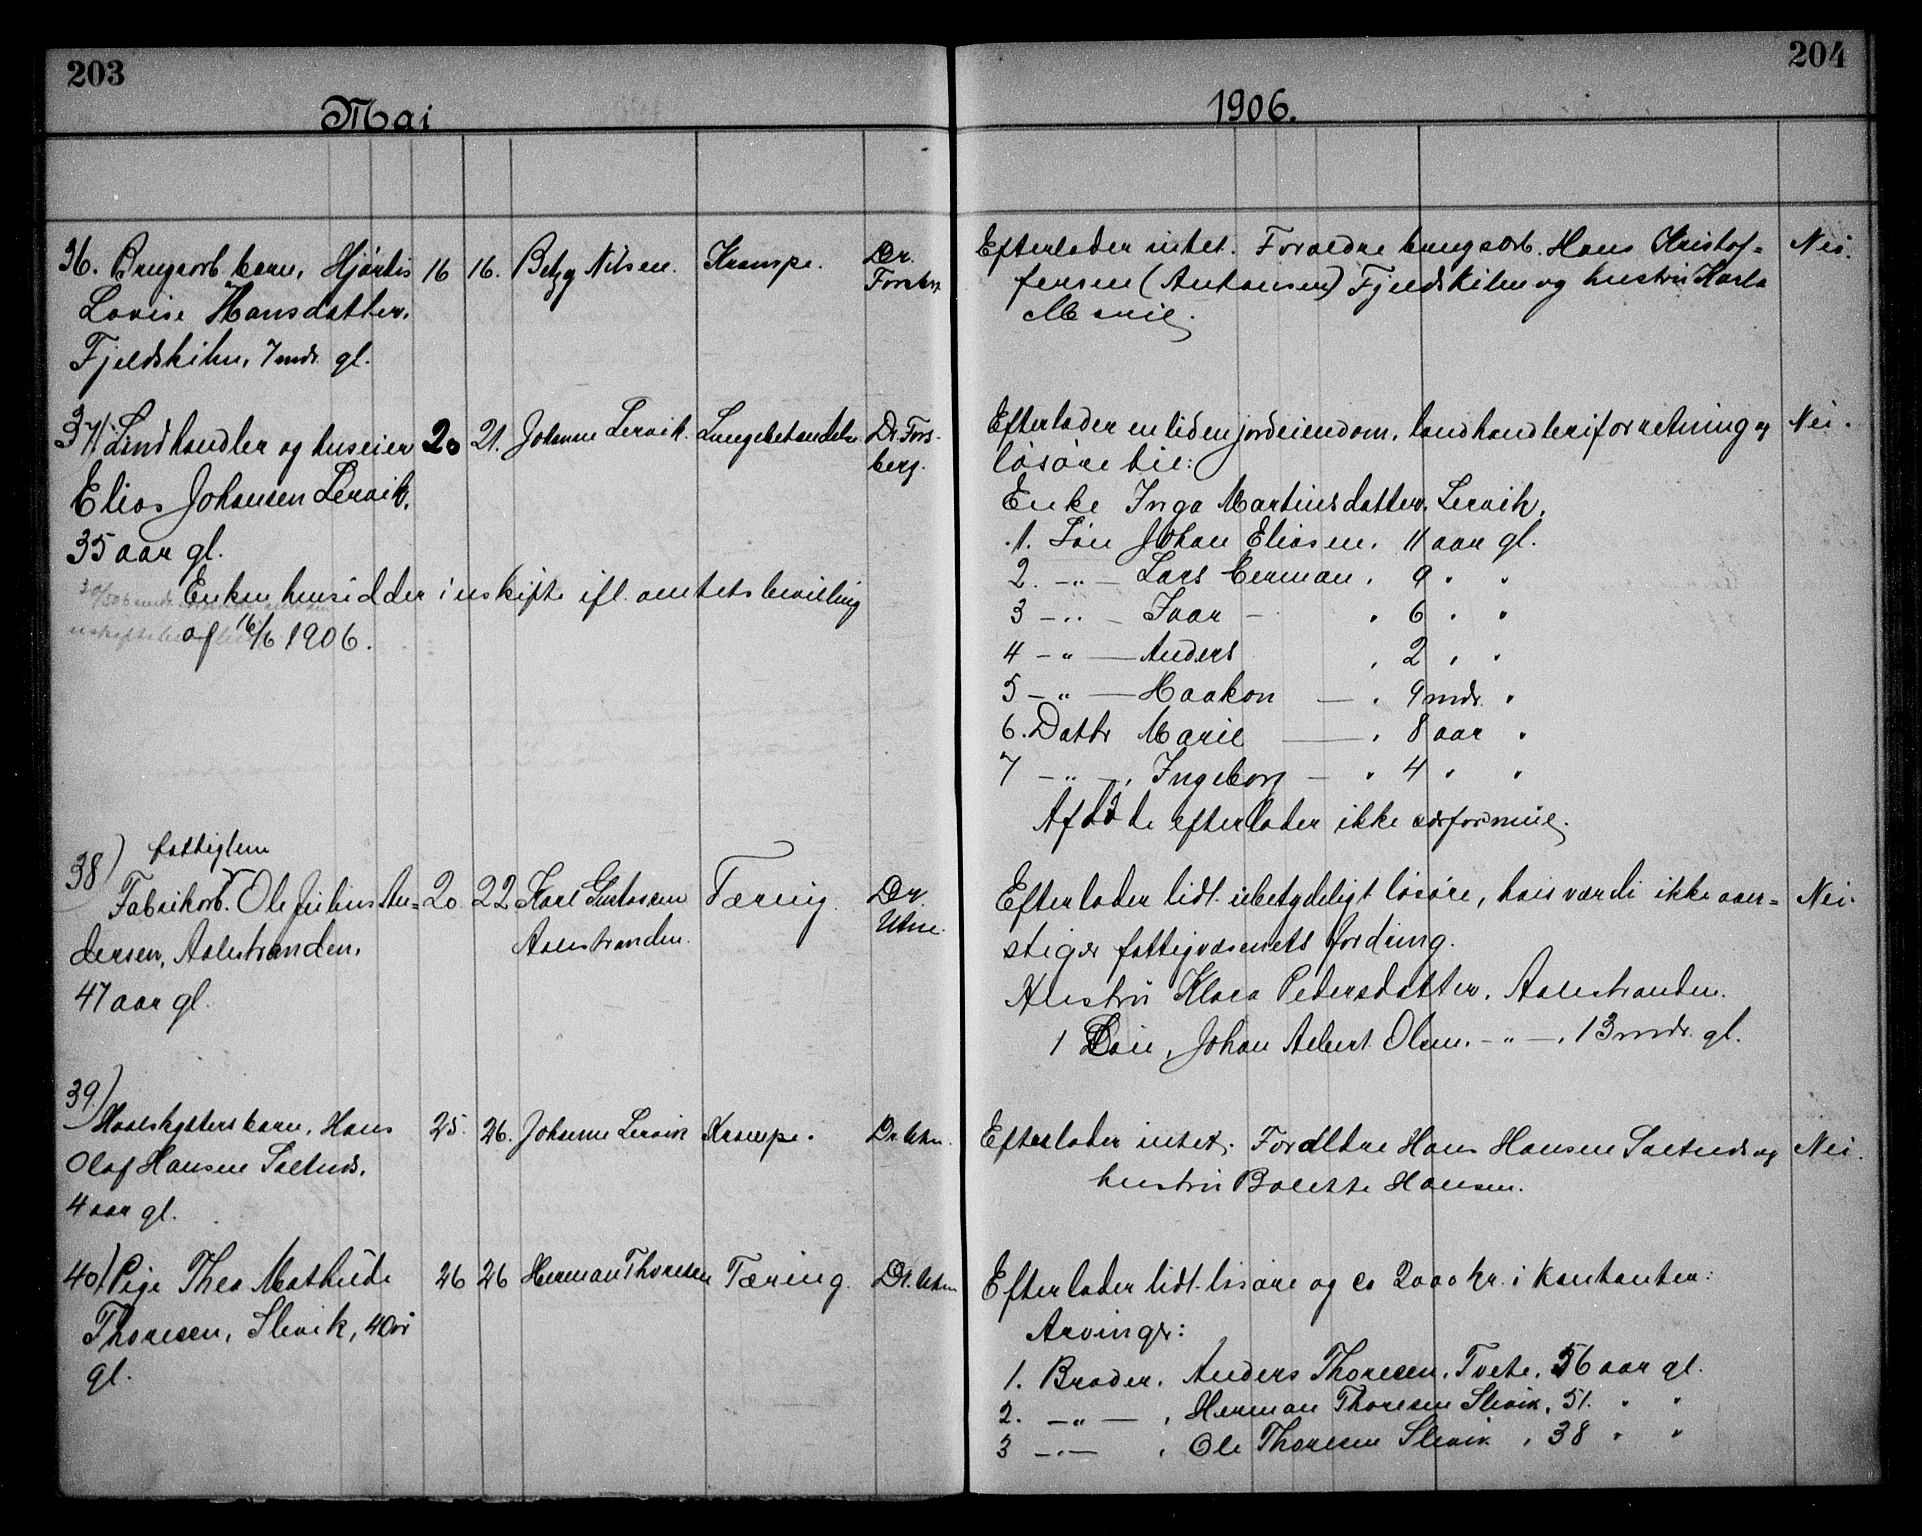 203
204
Mai
1906.
36. Brugsarb. barn, Hjørdis
Lovise Hansdatter,
Fjeldskilen, 7 mdr. gl.
16
16.
Betzy Nilsen.
Krampe.
Dr.
Efterlader intet. Forældre brugsarb. Hans Kristof=
fersen (Antonsen) Fjeldskilen og hustru Karla
Nei.
37/ Landhandler og huseier
Elias Johansen Lervik,
35 aar gl.
20
21.
Johanne Lervik.
Lungebetændelse
Dr. Fors-
berg.
Enken hensidder i uskifte ifl. amtets bevilling
af 16/6 1906.
Efterlader en liden jordeiendom, landhandleriforretning og
løsøre til:
Enke Inga Martinsdatter, Lervik.
1. Søn Johan Eliasen, 11 aar gl.
2. -"- Lars Herman, 9 " "
3 -"- Ivar - " 6 " "
4 -"- Anders , 2 " "
5 -"- Haakon - " 9 mdr. "
6. Dattr Marie - , 8 aar "
7 -"-, Ingeborg - " 4 " "
Afdøde efterlader ikke særformue.
Nei.
38) fattiglem
Fabrikarb. Ole Julius An=
dersen, Aalestranden,
47 aar gl.
20
22
Karl Gustavsen
Aalestranden.
Tæring.
Dr.
Utne.
Efterlader lidt ubetydeligt løsøre, hvis værdi ikke over=
stiger fattigvæsenets fordring.
Hustru Klara Pedersdatter, Aalestranden.
1 Søn, Johan Albert Olsen. -"-, 13 mdr. gl.
Nei.
39.)
barn, Hans
Olaf Hansen Saltnes,
4 aar gl.
25.
26.
Johanne Lervik
Krampe.
Dr. Utne.
Efterlader intet. Forældre Hans Hansen Saltnes og
hustru Bolette Hansen.
Nei.
40) Pige Thea Mathilde
Thoresen, Slevik, 40 aar
gl.
26
26
Herman Thoresen
Tæring.
Dr. Utne
Efterlader lidt løsøre og ca 2000 kr. i kontanter:
Arvinger:
1. Broder, Anders Thoresen, Tvete, 56 aar gl.
2. -"-, Herman Thoresen Slevik, 51. " "
3 -"- , Ole Thoresen Slevik , 38 " "